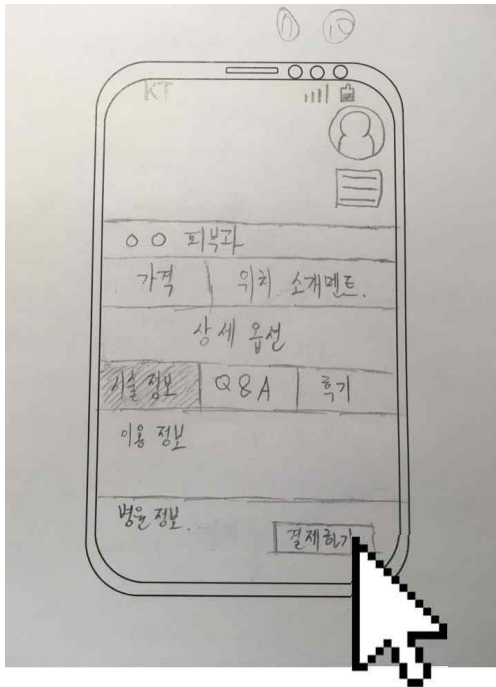 KT
○○ 피부과
가격 위치 소개멘트.
상세 옵션
시술 정보 Q&A 후기
이용 정보
병원 정보.
결제하기